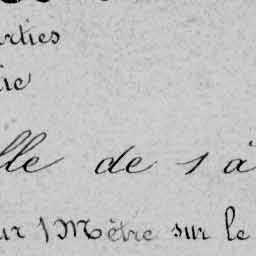 rties
ie
lle de 1 à
ur 1 Mètre sur le